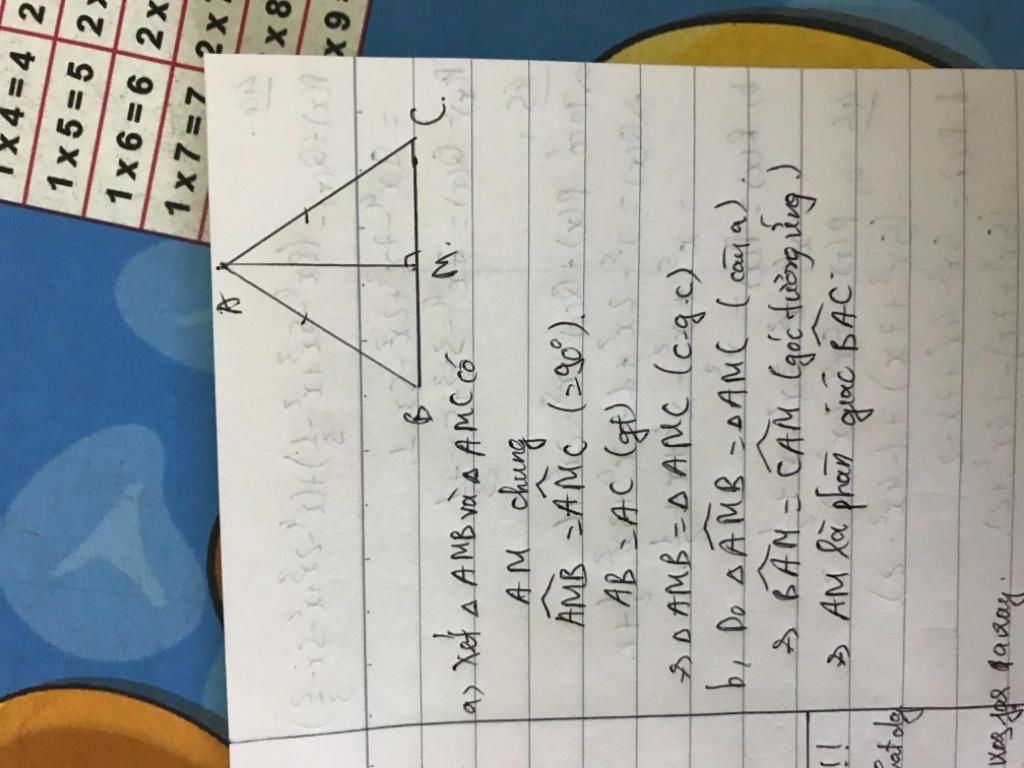 1x4=4
1x5=5
1x6=6
1x7=7
A
B
M.
C.
a) Xét △AMB và △AMC có
AM chung
AMB̂ = AM̂C (=90°).
AB = AC (gt)
⇒ △AMB = △AMC (c-g-c)
b, Do △AM̂B = △AMC (câu a).
⇒ BÂM = CÂM (góc tương ứng)
⇒ AM là phân giác BÂC